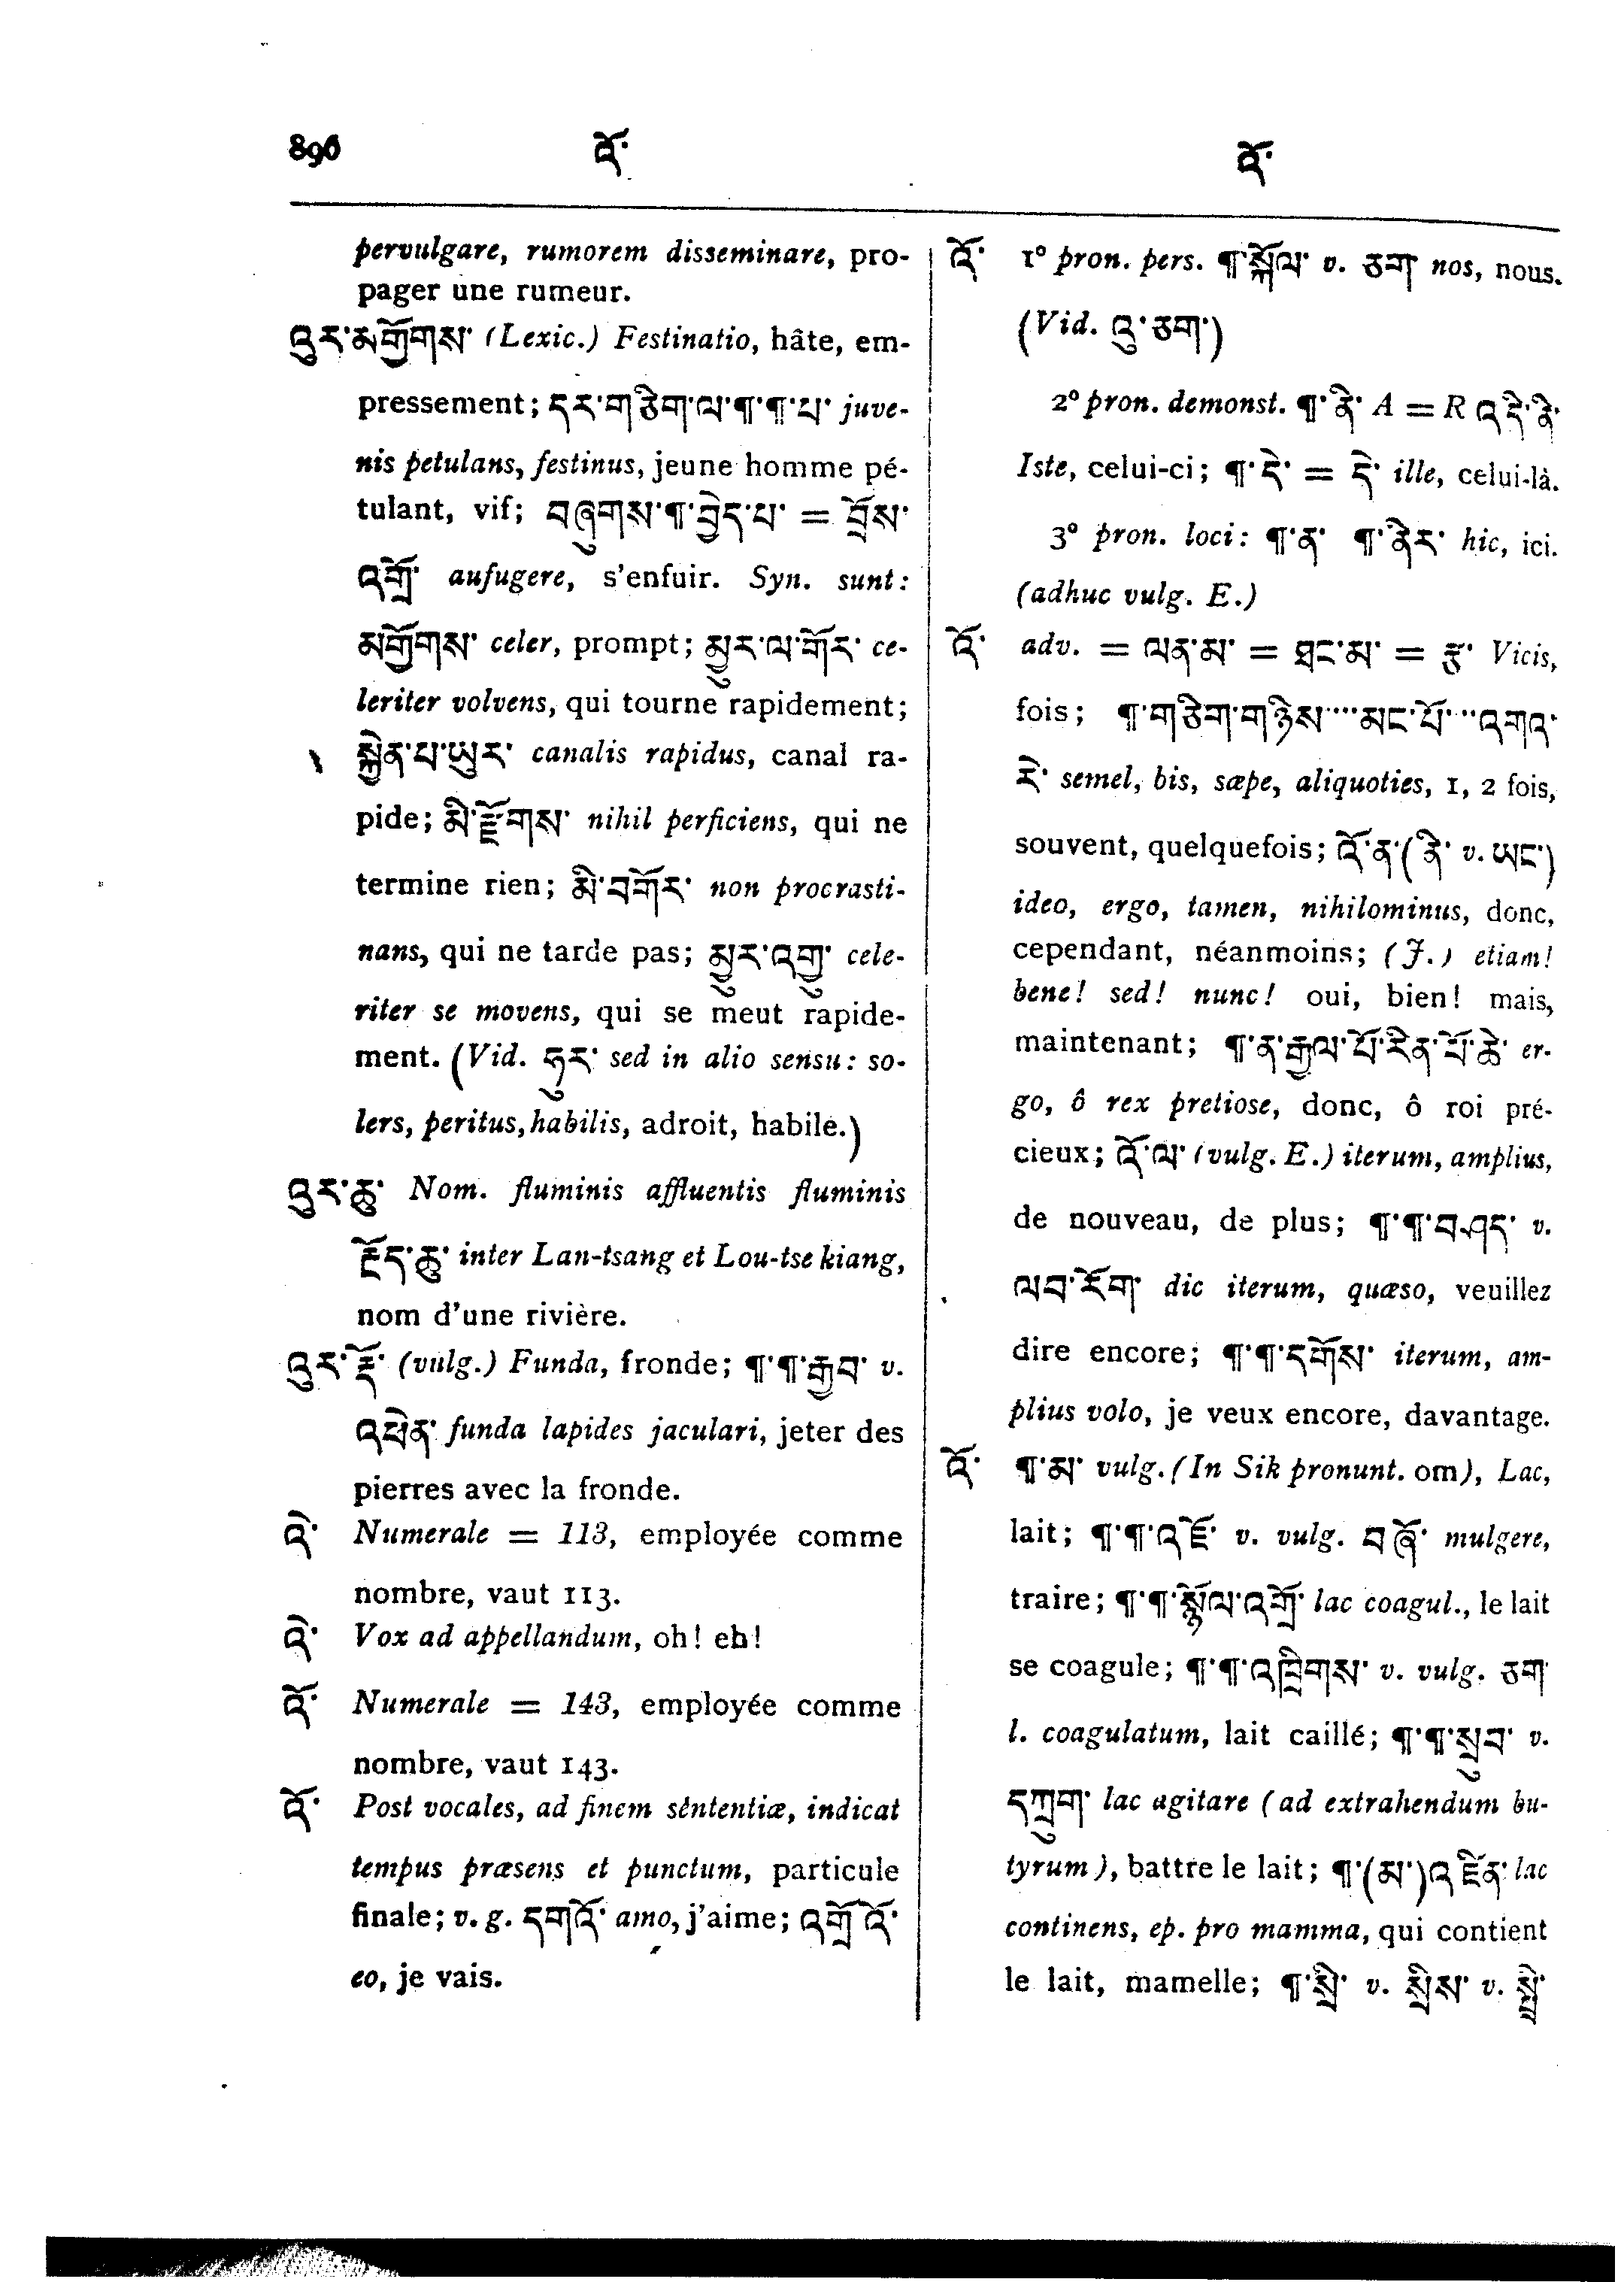 896 འོ་ འོ་
pervulgare, rumorem disseminare, pro-
pager une rumeur.
འུར་མགྱོགས་ (Lexic.) Festinatio, hâte, em-
pressement; དར་གཅིག་ལ་¶་¶་པ་ juve-
nis petulans, festinus, jeune homme pé-
tulant, vif; བཞུགས་¶་བྱེད་པ་ = བྲོས་
འགྲོ་ aufugere, s'enfuir. Syn. sunt:
མགྱོགས་ celer, prompt; མྱུར་ལ་གོར་ ce-
leriter volvens, qui tourne rapidement;
སྐྱེན་པ་ཡུར་ canalis rapidus, canal ra-
pide; མི་རྫོགས་ nihil perficiens, qui ne
termine rien; མི་བགོར་ non procrasti-
nans, qui ne tarde pas; མྱུར་འགྱུ་ cele-
riter se movens, qui se meut rapide-
ment. (Vid. ཧུར་ sed in alio sensu: so-
lers, peritus, habilis, adroit, habile.)
འུར་ཆུ་ Nom. fluminis affluentis fluminis
རྫོད་ཆུ་ inter Lan-tsang et Lou-tse kiang,
nom d'une rivière.
འུར་རྡོ་ (vulg.) Funda, fronde; ¶་¶་རྒྱབ་ v.
འཕེན་ funda lapides jaculari, jeter des
pierres avec la fronde.
འེ་ Numerale = 113, employée comme
nombre, vaut 113.
འེ་ Vox ad appellandum, oh! eh!
འོ་ Numerale = 143, employée comme
nombre, vaut 143.
འོ་ Post vocales, ad finem sententiæ, indicat
tempus præsens et punctum, particule
finale; v. g. དགའོ་ amo, j'aime; འགྲོ་འོ་
eo, je vais.
འོ་ 1º pron. pers. ¶་སྐོལ་ v. ཅག་ nos, nous.
(Vid. འུ་ཅག་)
2º pron. demonst. ¶་ནི་ A = R འདི་ནི་
Iste, celui-ci; ¶་དེ་ = དེ་ ille, celui-là.
3º pron. loci: ¶་ན་ ¶་ནེར་ hic, ici.
(adhuc vulg. E.)
འོ་ adv. = ལན་མ་ = ཐང་མ་ = རྩ་ Vicis,
fois; ¶་གཅིག་གཉིས་···མང་པོ་··འགའ་
རེ་ semel, bis, sæpe, aliquoties, 1, 2 fois,
souvent, quelquefois; འོ་ན་(ནི་ v. ཡང་)
ideo, ergo, tamen, nihilominus, donc,
cependant, néanmoins; (J.) etiam!
bene! sed! nunc! oui, bien! mais,
maintenant; ¶་ན་རྒྱལ་པོ་རིན་པོ་ཆེ་ er-
go, ô rex pretiose, donc, ô roi pré-
cieux; འོ་ལ་ (vulg. E.) iterum, amplius,
de nouveau, de plus; ¶་¶་བ་ཤད་ v.
ལབ་རོག་ dic iterum, quæso, veuillez
dire encore; ¶་¶་དགོས་ iterum, am-
plius volo, je veux encore, davantage.
འོ་ ¶་མ་ vulg. (In Sik pronunt. om), Lac,
lait; ¶་¶་འཇོ་ v. vulg. བཞོ་ mulgere,
traire; ¶་¶་སྙོལ་འགྲོ་ lac coagul., le lait
se coagule; ¶་¶་འཁྲིགས་ v. vulg. ཅག་
l. coagulatum, lait caillé; ¶་¶་སྲུབ་ v.
དཀྲུག་ lac agitare (ad extrahendum bu-
tyrum), battre le lait; ¶་(མ་)འཛིན་ lac
continens, ep. pro mamma, qui contient
le lait, mamelle; ¶་སྲི་ v. སྲིས་ v. སྤྲི་